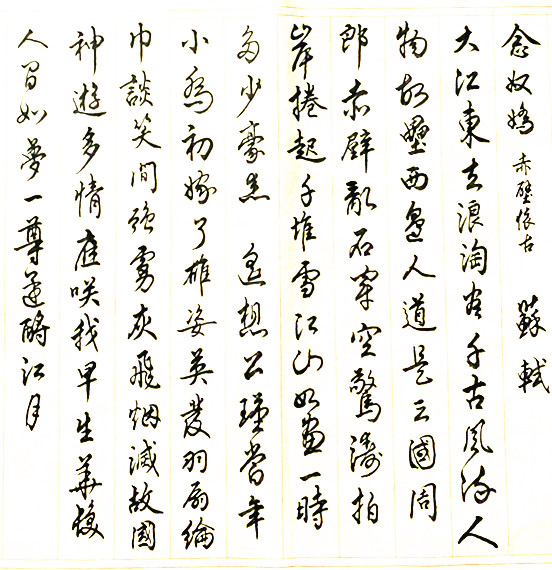 念奴嬌 赤壁懷古 蘇軾
大江東去浪淘盡千古風流人
物故壘西邊人道是三國周
郎赤壁亂石穿空驚濤拍
岸捲起千堆雪江山如畫一時
多少豪杰 遙想公瑾當年
小喬初嫁了雄姿英發羽扇綸
巾談笑間強虜灰飛烟滅故國
神遊多情應咲我早生華髮
人間如夢一尊還酹江月